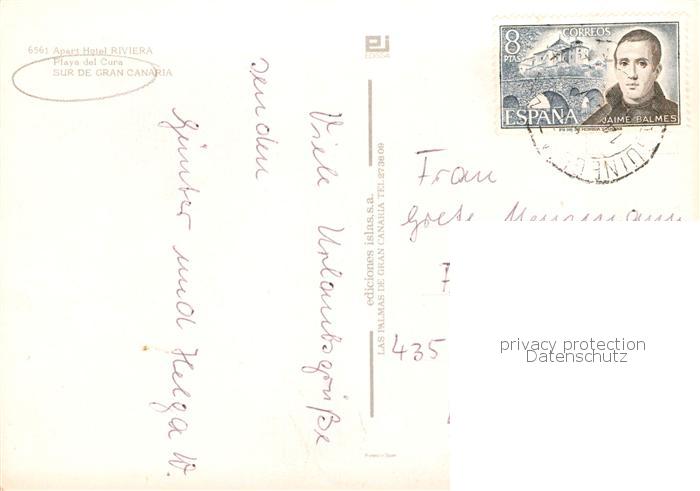 6561 Apart Hotel RIVIERA
Playa del Cura
SUR DE GRAN CANARIA
Viele Urlaubsgrüße
senden
Günter und Helga W.
EDISSA
ediciones islas,s.a.
LAS PALMAS DE GRAN CANARIA TEL.273609
Printed in Spain
8
PTAS
CORREOS
ESPAÑA
JAIME BALMES
Frau
Grete
435
privacy protection
Datenschutz